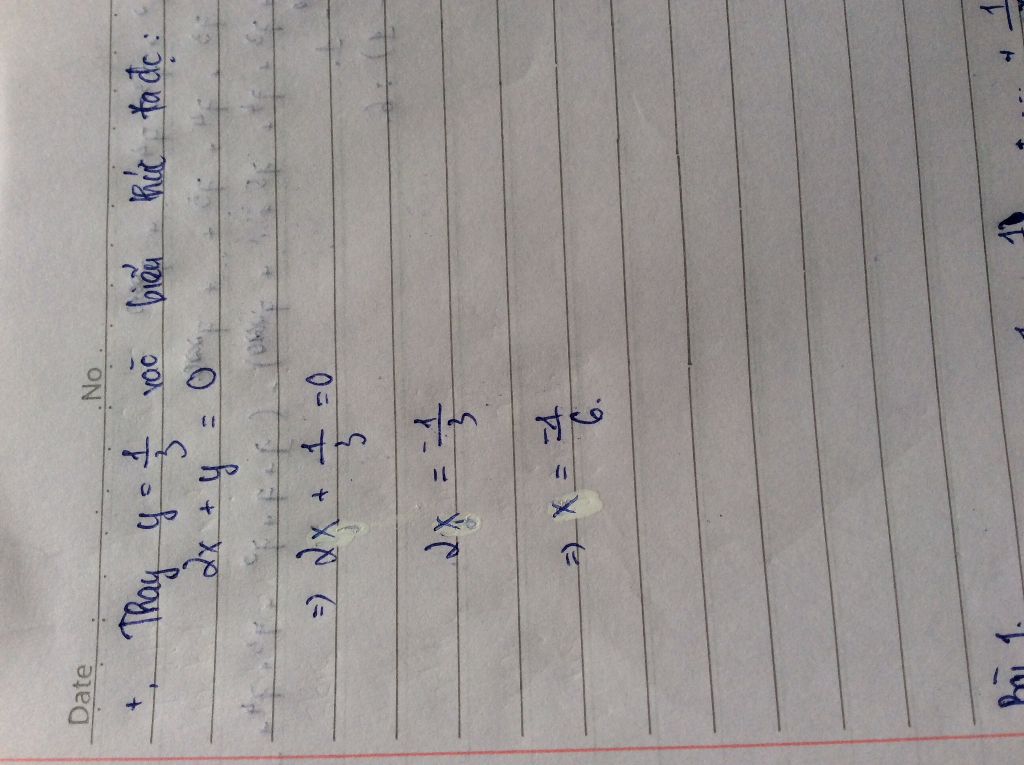 Date No
+, Thay y = 1/3 vào biểu thức ta đc:
2x + y = 0
=) 2x + 1/3 = 0
2x = -1/3
=) x = -1/6.
Bài 1.